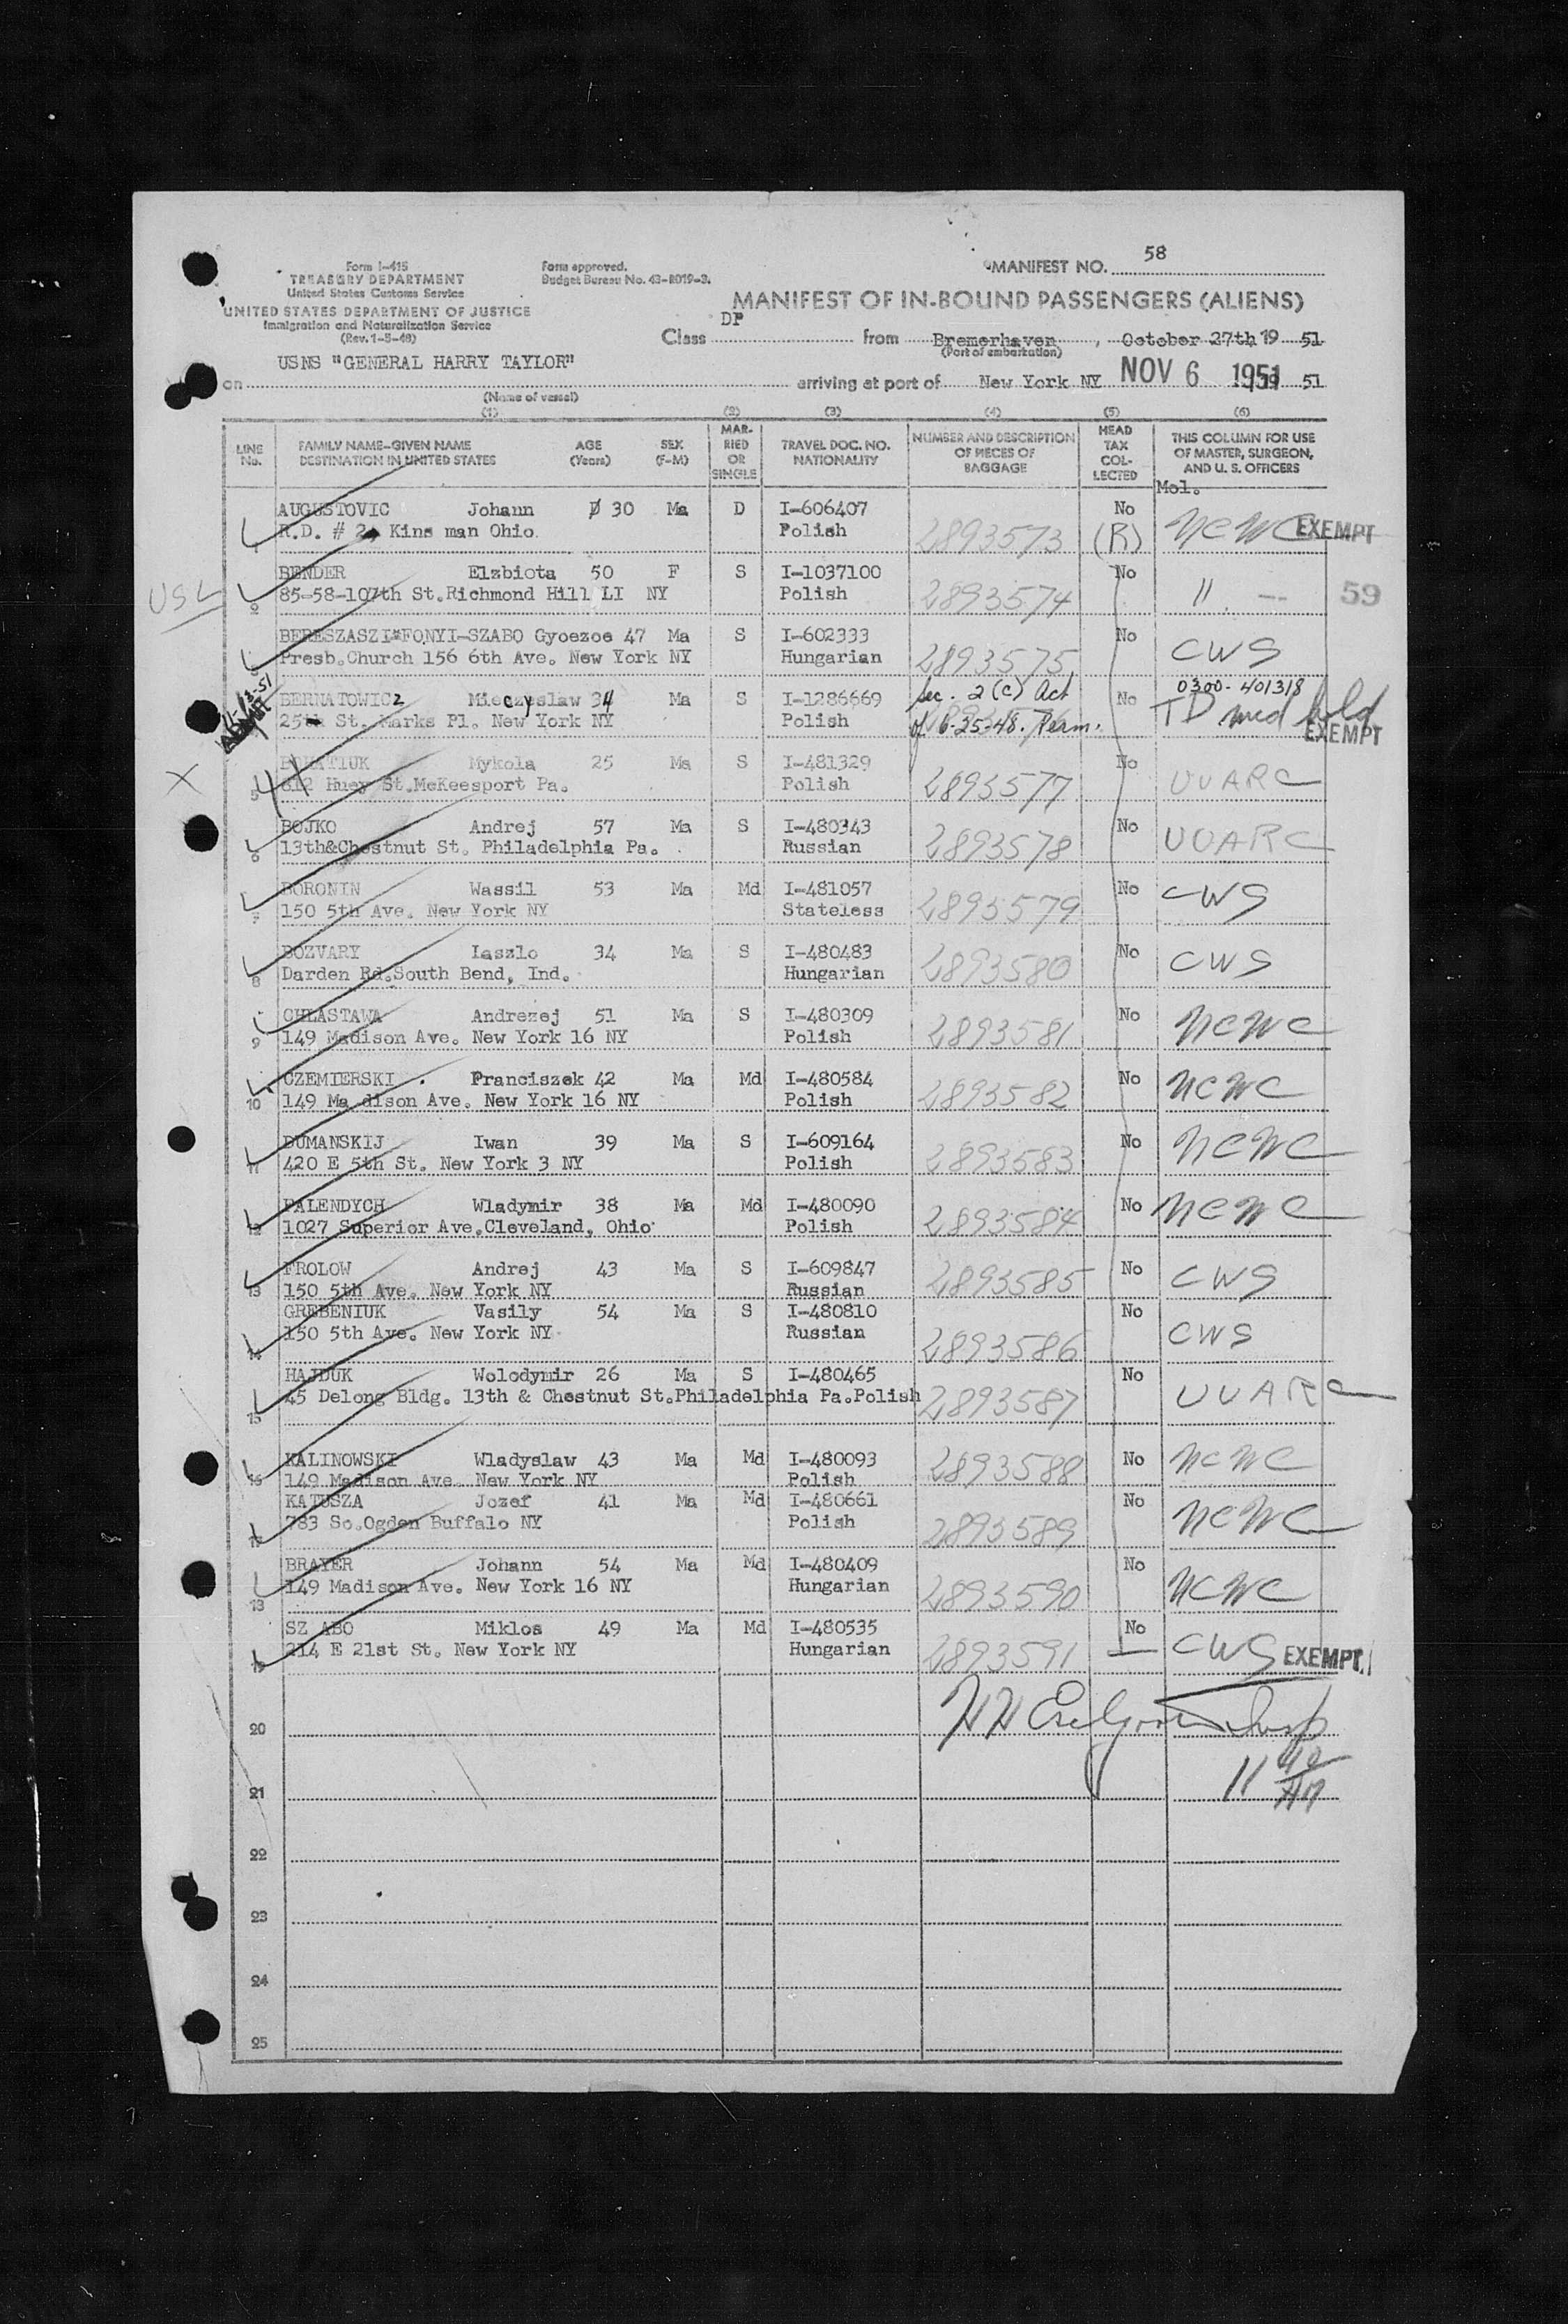 58
Form I-415
TREASURY DEPARTMENT
United States Customs Service
UNITED STATES DEPARTMENT OF JUSTICE
Immigration and Naturalization Service
(Rev. 1-5-48)
Form approved.
Budget Bureau No. 43-R019-3.
MANIFEST NO.
MANIFEST OF IN-BOUND PASSENGERS (ALIENS)
Class DP from Bremerhaven, October 27th, 19 51
(Port of embarkation)
on USNS "GENERAL HARRY TAYLOR" arriving at port of New York NY NOV 6 1951 51
(Name of vessel)
(1) (2) (3) (4) (5) (6)
LINE No. FAMILY NAME-GIVEN NAME DESTINATION IN UNITED STATES AGE (Years) SEX (F-M) MARRIED OR SINGLE TRAVEL DOC. NO. NATIONALITY NUMBER AND DESCRIPTION OF PIECES OF BAGGAGE HEAD TAX COLLECTED THIS COLUMN FOR USE OF MASTER, SURGEON, AND U. S. OFFICERS
Mol.
AUGUSTOVIC Johann 30 Ma D I-606407 No
R.D. # 2, Kins man Ohio Polish 2893573 (R) NCWC EXEMPT
USL
BENDER Elzbieta 50 F S I-1037100 No
2 85-58-107th St.Richmond Hill LI NY Polish 2893574 " - 59
BERESZASZI-FONYI-SZABO Gyoezoe 47 Ma S I-602333 No
Presb.Church 156 6th Ave. New York NY Hungarian 2893575 CWS
BERNATOWICZ Mieczyslaw 34 Ma S I-1286669 Sec. 2 (c) Act No 0300-401318
25th St. Marks Pl. New York NY Polish of 6-25-48. Perm. TD med hold
EXEMPT
X Mykola 25 Ma S I-481329 No
5 612 Huey St.McKeesport Pa. Polish 2893577 UUARC
BOJKO Andrej 57 Ma S I-480343 No
6 13th&Chestnut St. Philadelphia Pa. Russian 2893578 UUARC
BORONIN Wassil 53 Ma Md I-481057 No
7 150 5th Ave. New York NY Stateless 2893579 CWS
BOZVARY Laszlo 34 Ma S I-480483 No
8 Darden Rd.South Bend, Ind. Hungarian 2893580 CWS
CHLASTAWA Andrezej 51 Ma S I-480309 No
9 149 Madison Ave. New York 16 NY Polish 2893581 NCWC
CZEMIERSKI Franciszek 42 Ma Md I-480584 No
10 149 Ma dison Ave. New York 16 NY Polish 2893582 NCWC
DUMANSKIJ Iwan 39 Ma S I-609164 No
11 420 E 5th St. New York 3 NY Polish 2893583 NCWC
FALENDYCH Wladymir 38 Ma Md I-480090 No
12 1027 Superior Ave.Cleveland, Ohio Polish 2893584 NCWC
FROLOW Andrej 43 Ma S I-609847 No
13 150 5th Ave. New York NY Russian 2893585 CWS
GREBENIUK Vasily 54 Ma S I-480810 No
14 150 5th Ave. New York NY Russian 2893586 CWS
HAJDUK Wolodymir 26 Ma S I-480465 No
15 45 Delong Bldg. 13th & Chestnut St.Philadelphia Pa.Polish 2893587 UUARC
KALINOWSKI Wladyslaw 43 Ma Md I-480093 No
16 149 Madison Ave. New York NY Polish 2893588 NCWC
KATUSZA Jozef 41 Ma Md I-480661 No
17 783 So.Ogden Buffalo NY Polish 2893589 NCWC
BRAYER Johann 54 Ma Md I-480409 No
18 149 Madison Ave. New York 16 NY Hungarian 2893590 NCWC
SZ ABO Miklos 49 Ma Md I-480535 No
19 214 E 21st St. New York NY Hungarian 2893591 CWS EXEMPT
20 Insp
21 11 40 AM
22
23
24
25